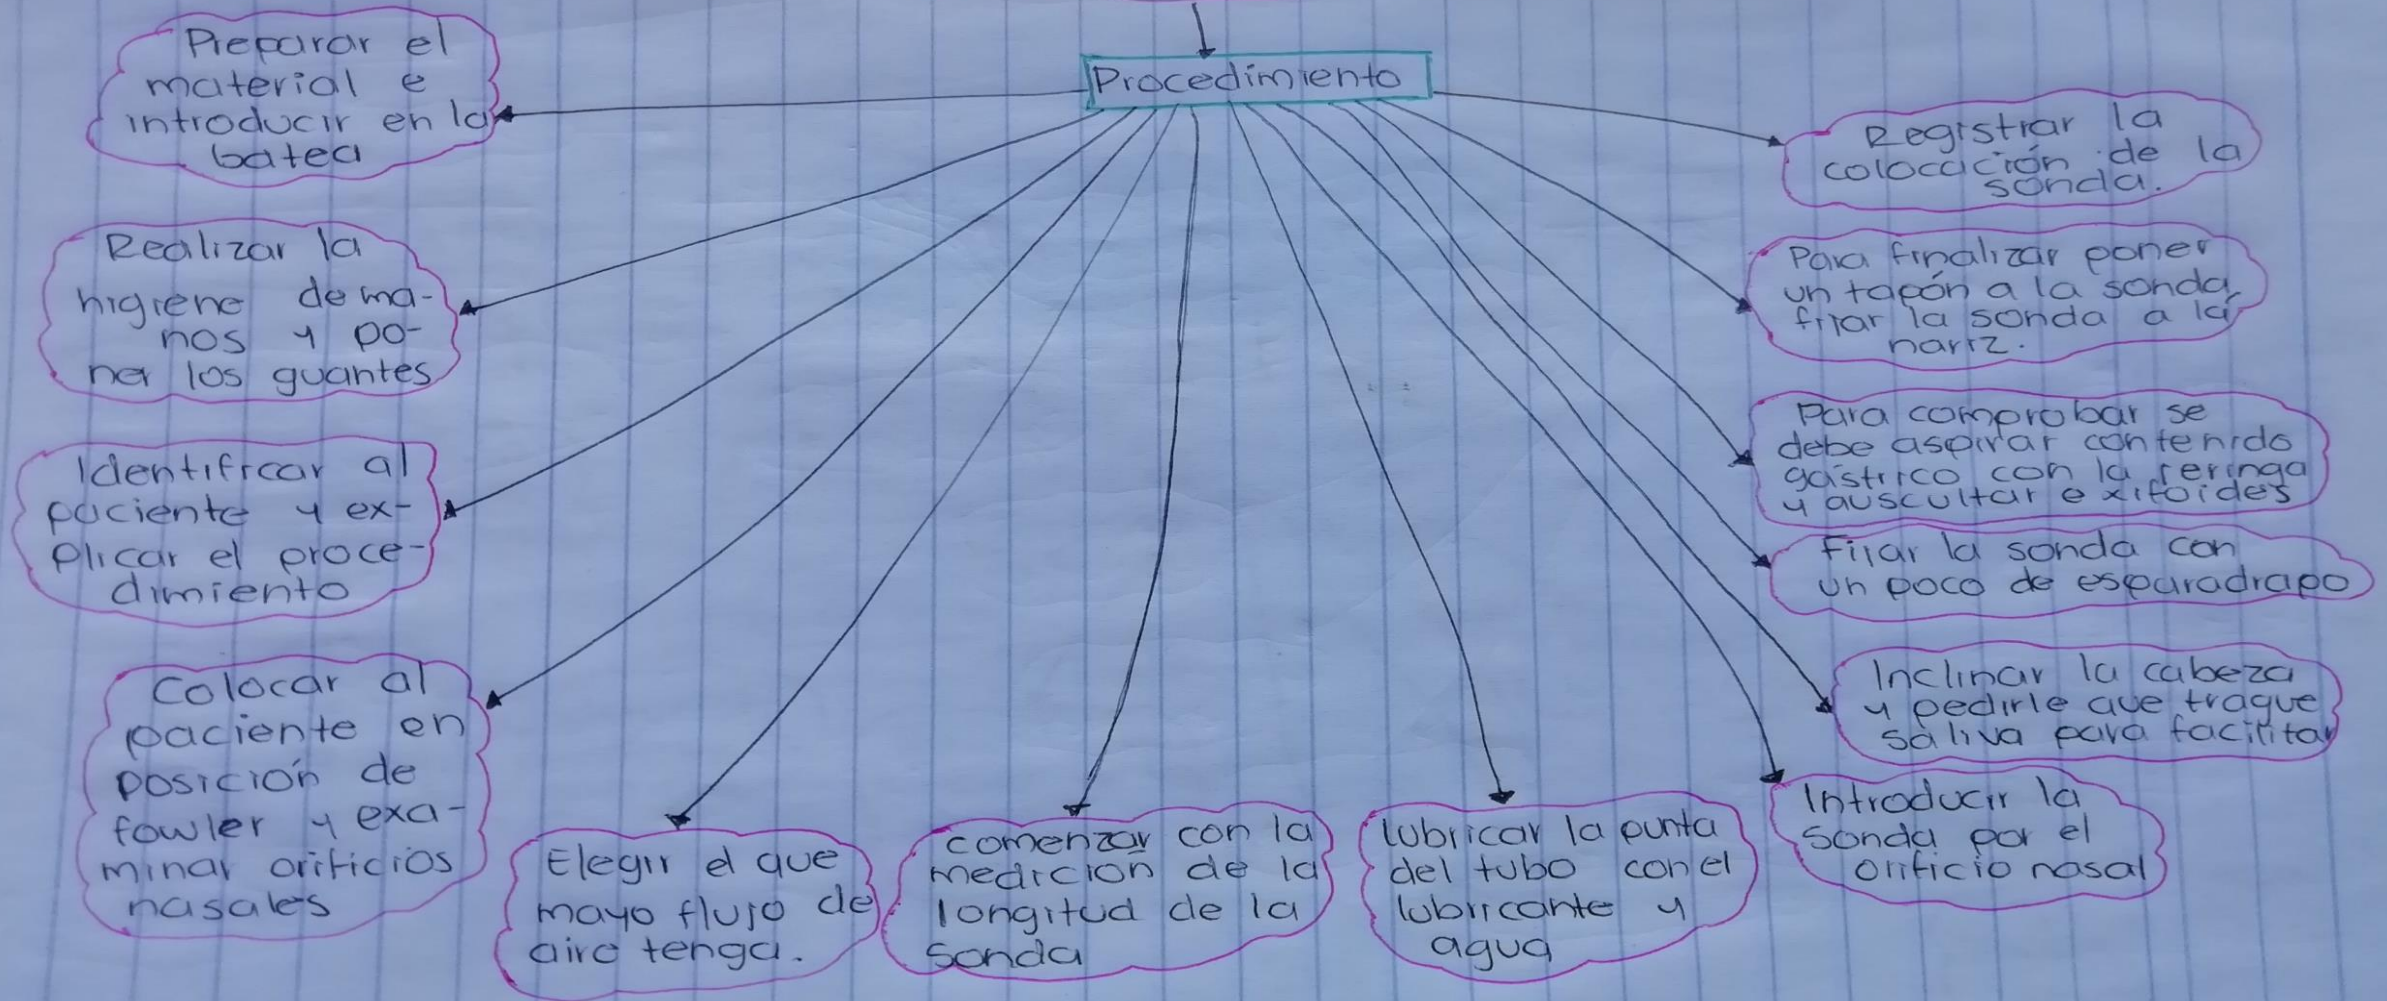 Procedimiento
Preparar el
material e
introducir en la
batea
Realizar la
higiene de ma-
nos y po-
ner los guantes
Identificar al
paciente y ex-
plicar el proce-
dimiento
Colocar al
paciente en
posición de
fowler y exa-
minar orificios
nasales
Elegir el que
mayo flujo de
aire tenga.
comenzar con la
medición de la
longitud de la
sonda
lubricar la punta
del tubo con el
lubricante y
agua
Introducir la
sonda por el
orificio nasal
Inclinar la cabeza
y pedirle que trague
saliva para facilitar
Fijar la sonda con
un poco de esparadrapo
Para comprobar se
debe aspirar contenido
gástrico con la jeringa
y auscultar e xifoides
Para finalizar poner
un tapón a la sonda
fijar la sonda a la
nariz.
Registrar la
colocación de la
sonda.